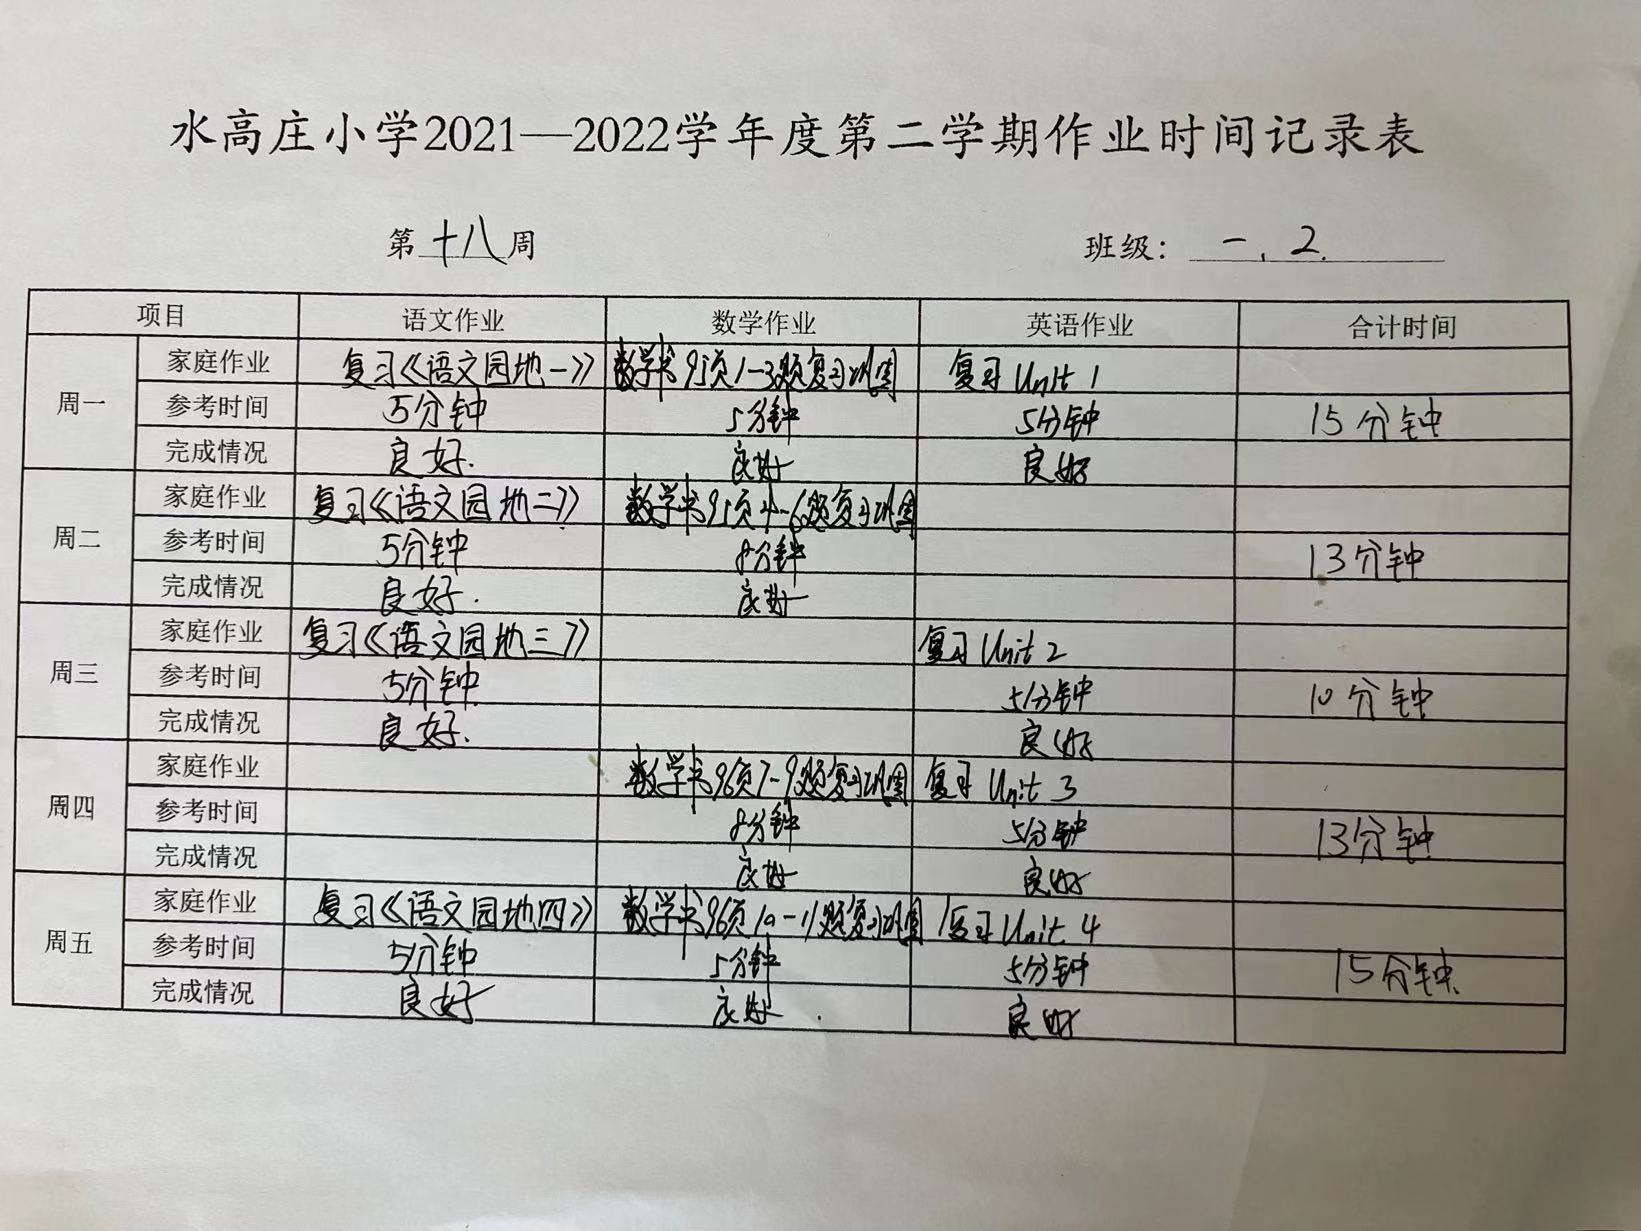 水高庄小学2021—2022学年度第二学期作业时间记录表
第 十八 周 班级： 一.2.
项目 语文作业 数学作业 英语作业 合计时间
周一
家庭作业 复习《语文园地一》 数学书95页1-3题复习巩固 复习 Unit 1
参考时间 5分钟 5分钟 5分钟 15分钟
完成情况 良好. 良好 良好
周二
家庭作业 复习《语文园地二》 数学书95页4-6题复习巩固
参考时间 5分钟 8分钟 13分钟
完成情况 良好. 良好
周三
家庭作业 复习《语文园地三》 复习 Unit 2
参考时间 5分钟 5分钟 10分钟
完成情况 良好. 良好
周四
家庭作业 数学书96页7-9题复习巩固 复习 Unit 3
参考时间 8分钟 5分钟 13分钟
完成情况 良好 良好
周五
家庭作业 复习《语文园地四》 数学书96页10-11题复习巩固 复习 Unit 4
参考时间 5分钟 5分钟 5分钟 15分钟
完成情况 良好 良好. 良好